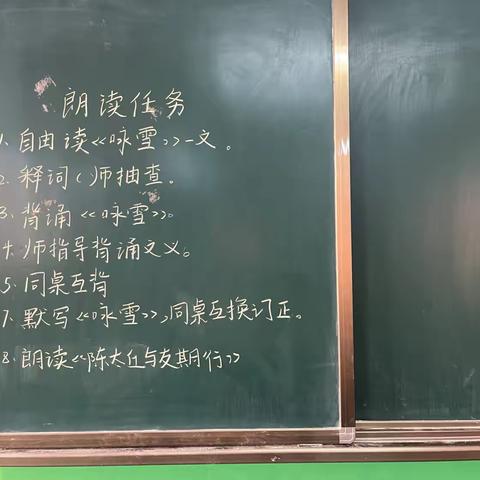 朗读任务
1、自由读《咏雪》一文。
2、释词()师抽查。
3、背诵《咏雪》。
4、师指导背诵文义。
5、同桌互背
7、默写《咏雪》,同桌互换订正。
8、朗读《陈太丘与友期行》